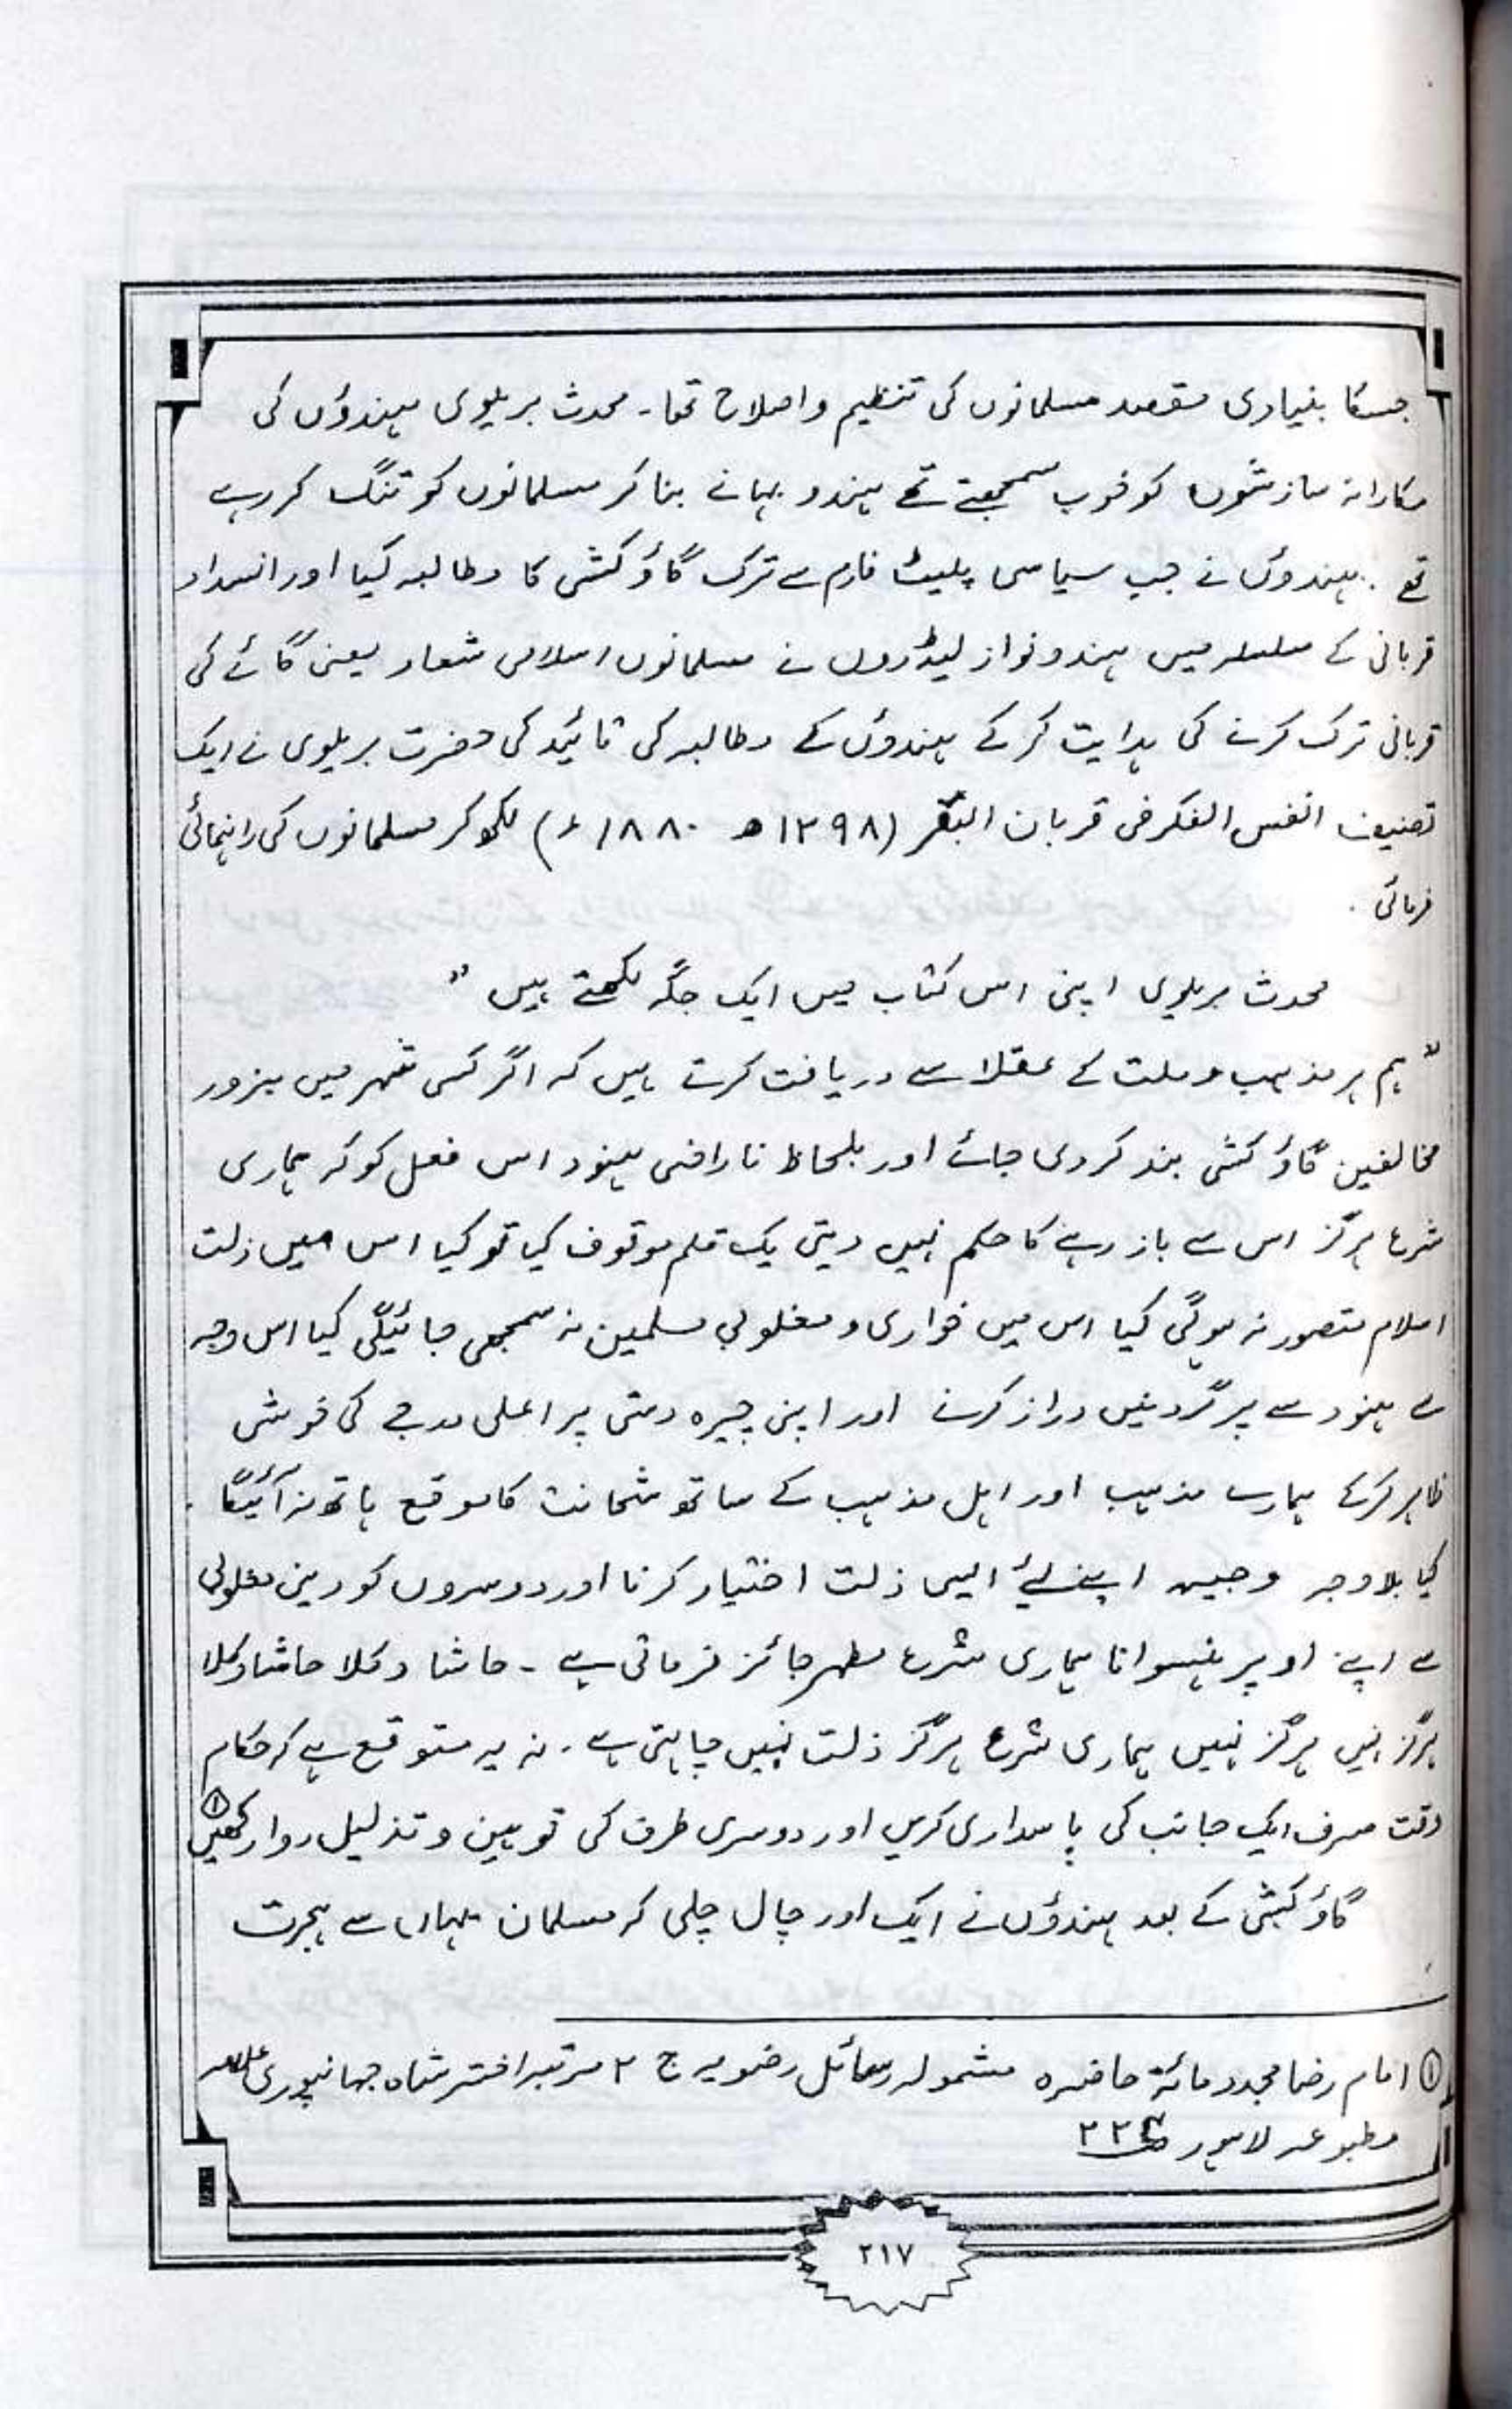 جسکا بنیادی مقصد مسلمانوں کی تنظیم و اصلاح تھا۔ محدث بریلوی ہندوؤں کی
مکارانہ سازشوں کو خوب سمجھتے تھے ہندو بہانے بنا کر مسلمانوں کو تنگ کر رہے
تھے۔ ہندوؤں نے جب سیاسی پلیٹ فارم سے ترک گاؤ کشی کا مطالبہ کیا اور انسداد
قربانی کے سلسلہ میں ہندو نواز لیڈروں نے مسلمانوں اسلامی شعار یعنی گائے کی
قربانی ترک کرنے کی ہدایت کر کے ہندوؤں کے مطالبہ کی تائید کی حضرت بریلوی نے ایک
تصنیف انفس الفکر فی قربان البقر (۱۲۹۸ھ ۱۸۸۰ء) لکھ کر مسلمانوں کی راہنمائی
فرمائی۔
محدث بریلوی اپنی اس کتاب میں ایک جگہ لکھتے ہیں "
"ہم ہر مذہب و ملت کے عقلا سے دریافت کرتے ہیں کہ اگر کسی شہر میں بزور
مخالفین گاؤ کشی بند کر دی جائے اور بلحاظ ناراضی ہنود اس فعل کو کہ ہماری
شرع ہرگز اس سے باز رہنے کا حکم نہیں دیتی یک قلم موقوف کیا تو کیا اس میں ذلت
اسلام متصور نہ ہوگی کیا اس میں خواری و مغلوبی مسلمین نہ سمجھی جائیگی کیا اس وجہ
سے ہنود سے پر گردنیں دراز کرنے اور اپنی چیرہ دستی پر اعلی درجے کی خوشی
ظاہر کرکے ہمارے مذہب اور اہل مذہب کے ساتھ شماتت کا موقع ہاتھ نہ آئیگا۔
کیا بلا وجہ وجیہہ اپنے لئے ایسی ذلت اختیار کرنا اور دوسروں کو دینی مغلوبی
سے اپنے اوپر ہنسوانا ہماری شرع مطہر جائز فرماتی ہے۔ حاشا و کلا حاشا و کلا
ہرگز نہیں ہرگز نہیں ہماری شرع ہرگز ذلت نہیں چاہتی ہے۔ نہ یہ متوقع ہے کہ حکام
وقت صرف ایک جانب کی پاسداری کریں اور دوسری طرف کی توہین و تذلیل روا رکھیں ①
گاؤ کشی کے بعد ہندوؤں نے ایک اور چال چلی کہ مسلمان یہاں سے ہجرت
① امام رضا مجدد مائۃ حاضرہ مشمولہ رسائل رضویہ ج ۲ مرتبہ اختر شاہ جہانپوری
مطبوعہ لاہور
۲۱۷